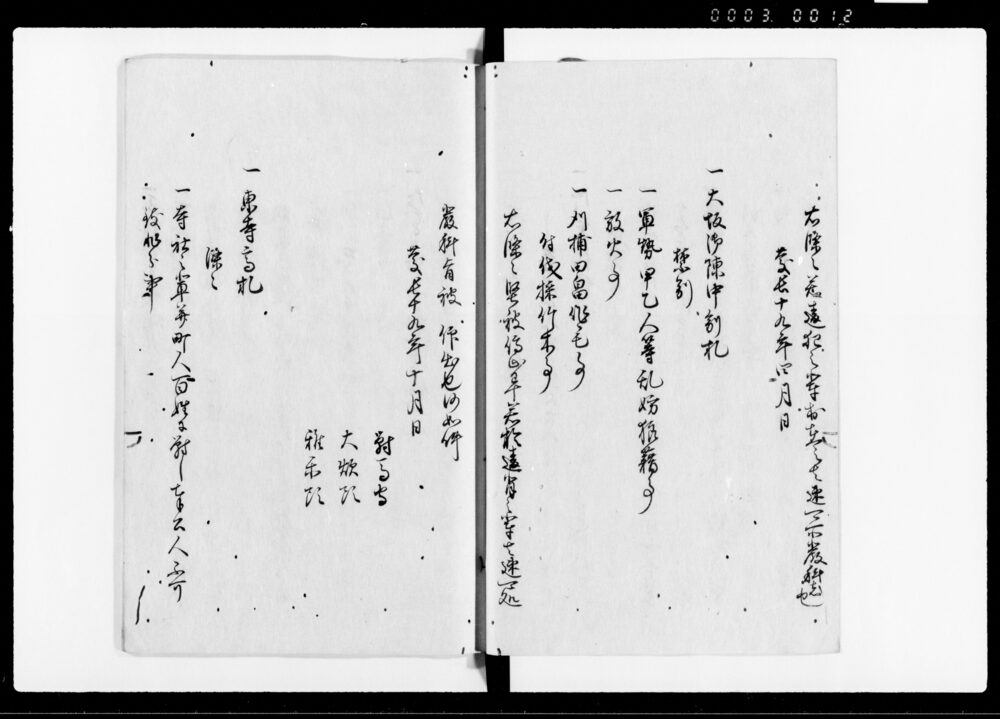 0003 0012
右条々若違犯之輩於在之者速可処厳科者也
慶長十九年四月日
一大坂御陣中制札
禁制
一軍勢甲乙人等乱妨狼藉事
一放火事
一刈捕田畠作毛事
付伐採竹木事
右条々堅被停止畢若於違背之輩者速可処
厳科旨被 仰出也仍如件
慶長十九年十月日
対馬守
大炊頭
雅楽頭
一東寺高札
条々
一寺社之輩并町人百姓等対し奉公人不可
致非分事